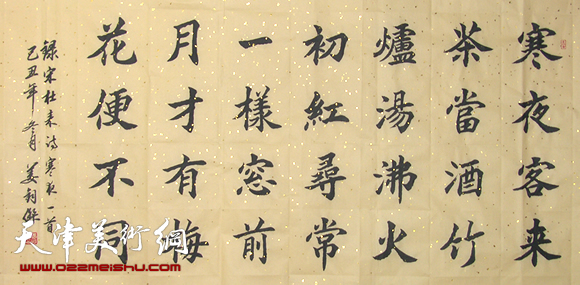 寒夜客来
茶當酒竹
爐湯沸火
初紅尋常
一樣窓前
月才有梅
花便不同
録宋杜耒诗寒夜一首
己丑年冬月 姜钧傑
天津美術網
www.022meishu.com